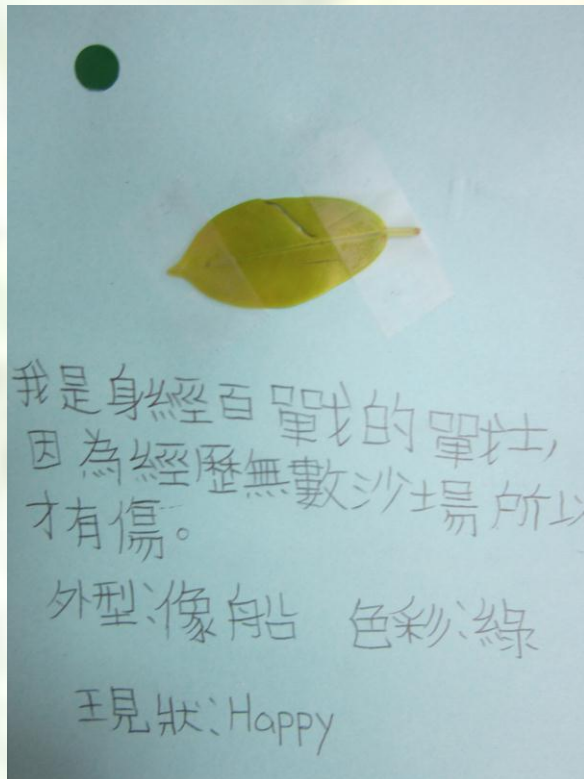 我是身經百戰的戰士,
因為經歷無數沙場所以
才有傷。
外型:像船 色彩:綠
現狀:Happy